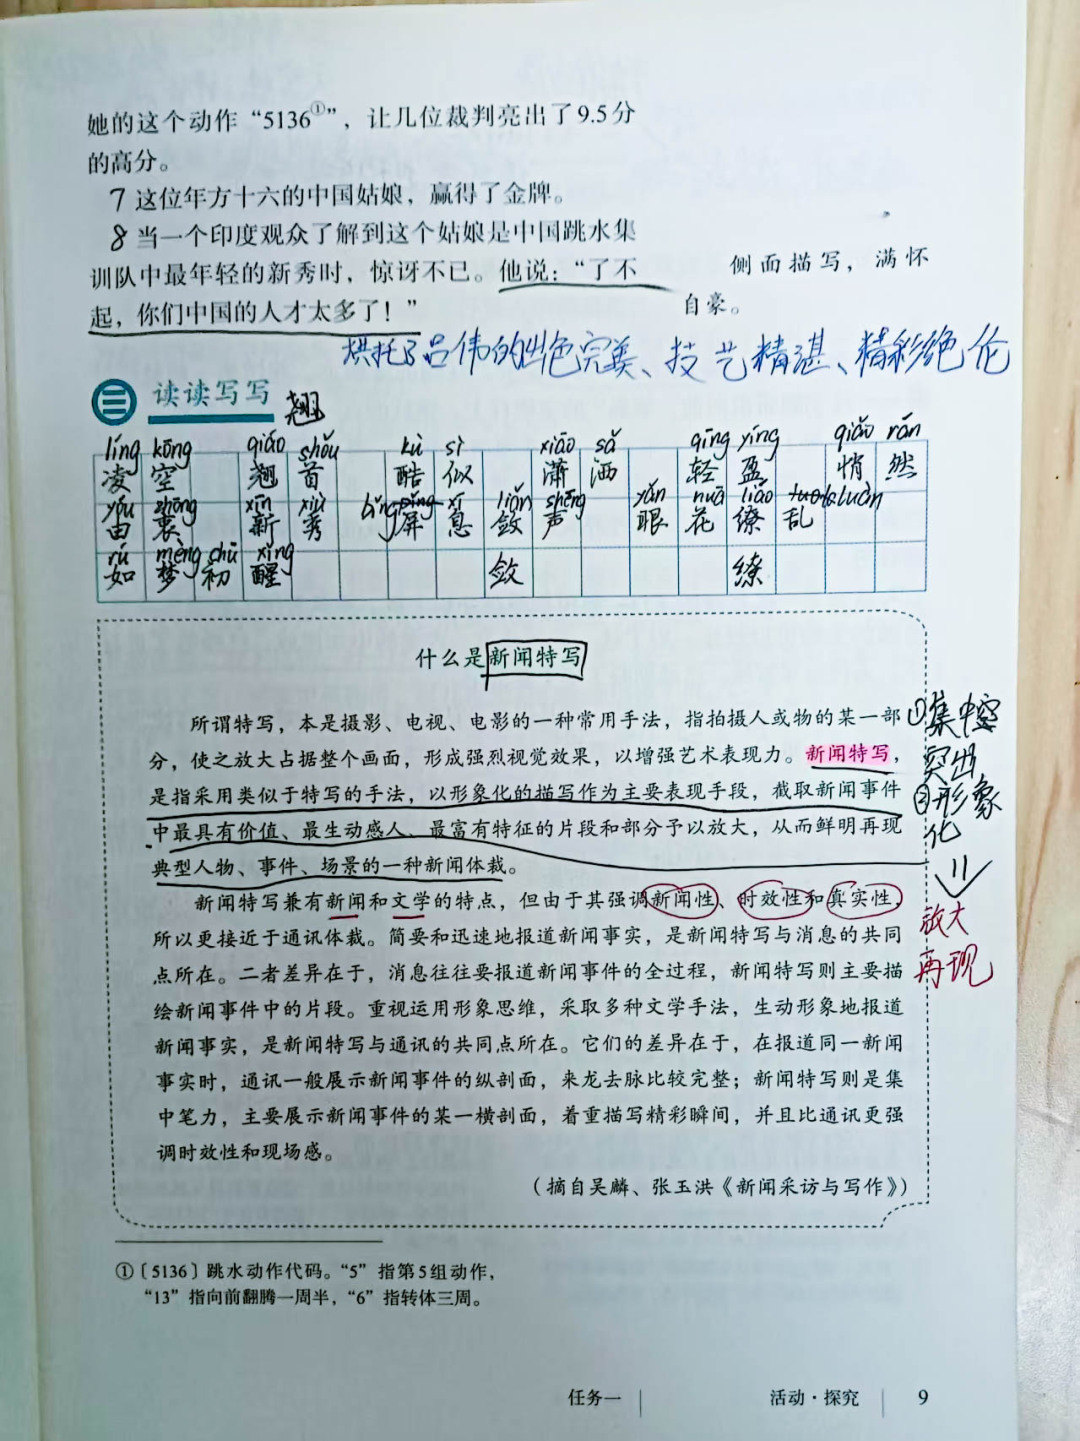 她的这个动作“5136①”，让几位裁判亮出了9.5分
的高分。
7 这位年方十六的中国姑娘，赢得了金牌。
8 当一个印度观众了解到这个姑娘是中国跳水集
训队中最年轻的新秀时，惊讶不已。他说：“了不
起，你们中国的人才太多了！”
侧面描写，满怀
自豪。
烘托了吕伟的出色完美、技艺精湛、精彩绝伦
三 读读写写 翘
líng kōng qiáo shǒu kù sì xiāo sǎ qīng yíng qiǎo rán
凌空 翘首 酷似 潇洒 轻盈 悄然
yóu zhōng xīn xiù bǐng xī liǎn shēng yǎn huā liáo luàn
由衷 新秀 屏息 敛声 眼花缭乱
rú mèng chū xǐng
如梦初醒 敛 缭
什么是新闻特写
所谓特写，本是摄影、电视、电影的一种常用手法，指拍摄人或物的某一部
分，使之放大占据整个画面，形成强烈视觉效果，以增强艺术表现力。新闻特写，
是指采用类似于特写的手法，以形象化的描写作为主要表现手段，截取新闻事件
中最具有价值、最生动感人、最富有特征的片段和部分予以放大，从而鲜明再现
典型人物、事件、场景的一种新闻体裁。
新闻特写兼有新闻和文学的特点，但由于其强调新闻性、时效性和真实性，
所以更接近于通讯体裁。简要和迅速地报道新闻事实，是新闻特写与消息的共同
点所在。二者差异在于，消息往往要报道新闻事件的全过程，新闻特写则主要描
绘新闻事件中的片段。重视运用形象思维，采取多种文学手法，生动形象地报道
新闻事实，是新闻特写与通讯的共同点所在。它们的差异在于，在报道同一新闻
事实时，通讯一般展示新闻事件的纵剖面，来龙去脉比较完整；新闻特写则是集
中笔力，主要展示新闻事件的某一横剖面，着重描写精彩瞬间，并且比通讯更强
调时效性和现场感。
（摘自吴麟、张玉洪《新闻采访与写作》）
①集中
突出
②形象
化
放大
再现
①〔5136〕跳水动作代码。“5”指第5组动作，
“13”指向前翻腾一周半，“6”指转体三周。
任务一 活动·探究 9